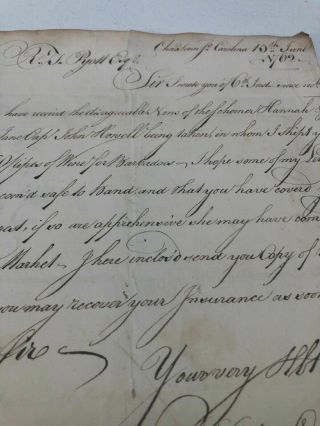 Chas town So. Carolina 13th June
R. T. Pyott Esqr. 1762
Sir I wrote you of 6th Inst. since
have receivd the disagreeable News of the Schooner Hannah
Jane Capt. John Howell being taken, in whom I Shipt
Pipes of Wine for Barbados, I hope some of my
com'd safe to Hand, and that you have coverd
if so are apprehensive she may have
Market. I here inclosd send you Copy of
you may recover your Insurance as soon
Sir
Your very Hble